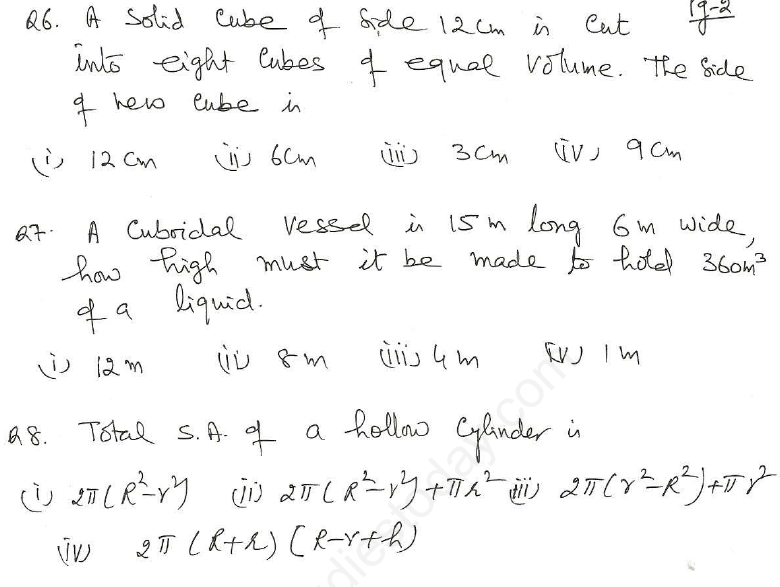 Pg-2
Q6. A solid cube of side 12 cm is cut
into eight cubes of equal volume. The side
of new cube is
(i) 12 cm (ii) 6 cm (iii) 3 cm (iv) 9 cm
Q7. A cuboidal vessel is 15 m long 6 m wide,
how high must it be made to hold 360m³
of a liquid.
(i) 12 m (ii) 8 m (iii) 4 m (iv) 1 m
Q8. Total S.A. of a hollow cylinder is
(i) 2π(R²-r²) (ii) 2π(R²-r²)+πr² (iii) 2π(r²-R²)+πr²
(iv) 2π (R+r) (R-r+h)